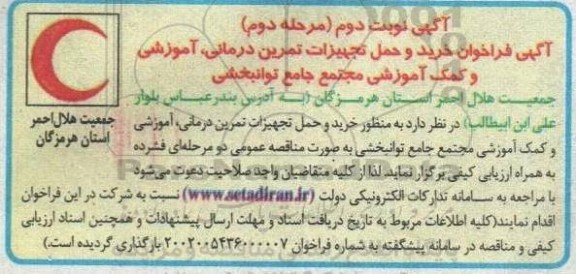 آگهی نوبت دوم (مرحله دوم)
آگهی فراخوان خرید و حمل تجهیزات تمرین درمانی، آموزشی
و کمک آموزشی مجتمع جامع توانبخشی
جمعیت هلال احمر استان هرمزگان (به آدرس بندرعباس بلوار
علی ابن ابیطالب) در نظر دارد به منظور خرید و حمل تجهیزات تمرین درمانی، آموزشی
و کمک آموزشی مجتمع جامع توانبخشی به صورت مناقصه عمومی دو مرحله‌ای فشرده
به همراه ارزیابی کیفی برگزار نماید. لذا از کلیه متقاضیان واجد صلاحیت دعوت می‌شود
با مراجعه به سامانه تدارکات الکترونیکی دولت (www.setadiran.ir) نسبت به شرکت در این فراخوان
اقدام نمایند(کلیه اطلاعات مربوط به تاریخ دریافت اسناد و مهلت ارسال پیشنهادات و همچنین اسناد ارزیابی
کیفی و مناقصه در سامانه پیشگفته به شماره فراخوان ۲۰۰۲۰۰۵۴۳۶۰۰۰۰۰۷ بارگذاری گردیده است.)
جمعیت هلال احمر
استان هرمزگان